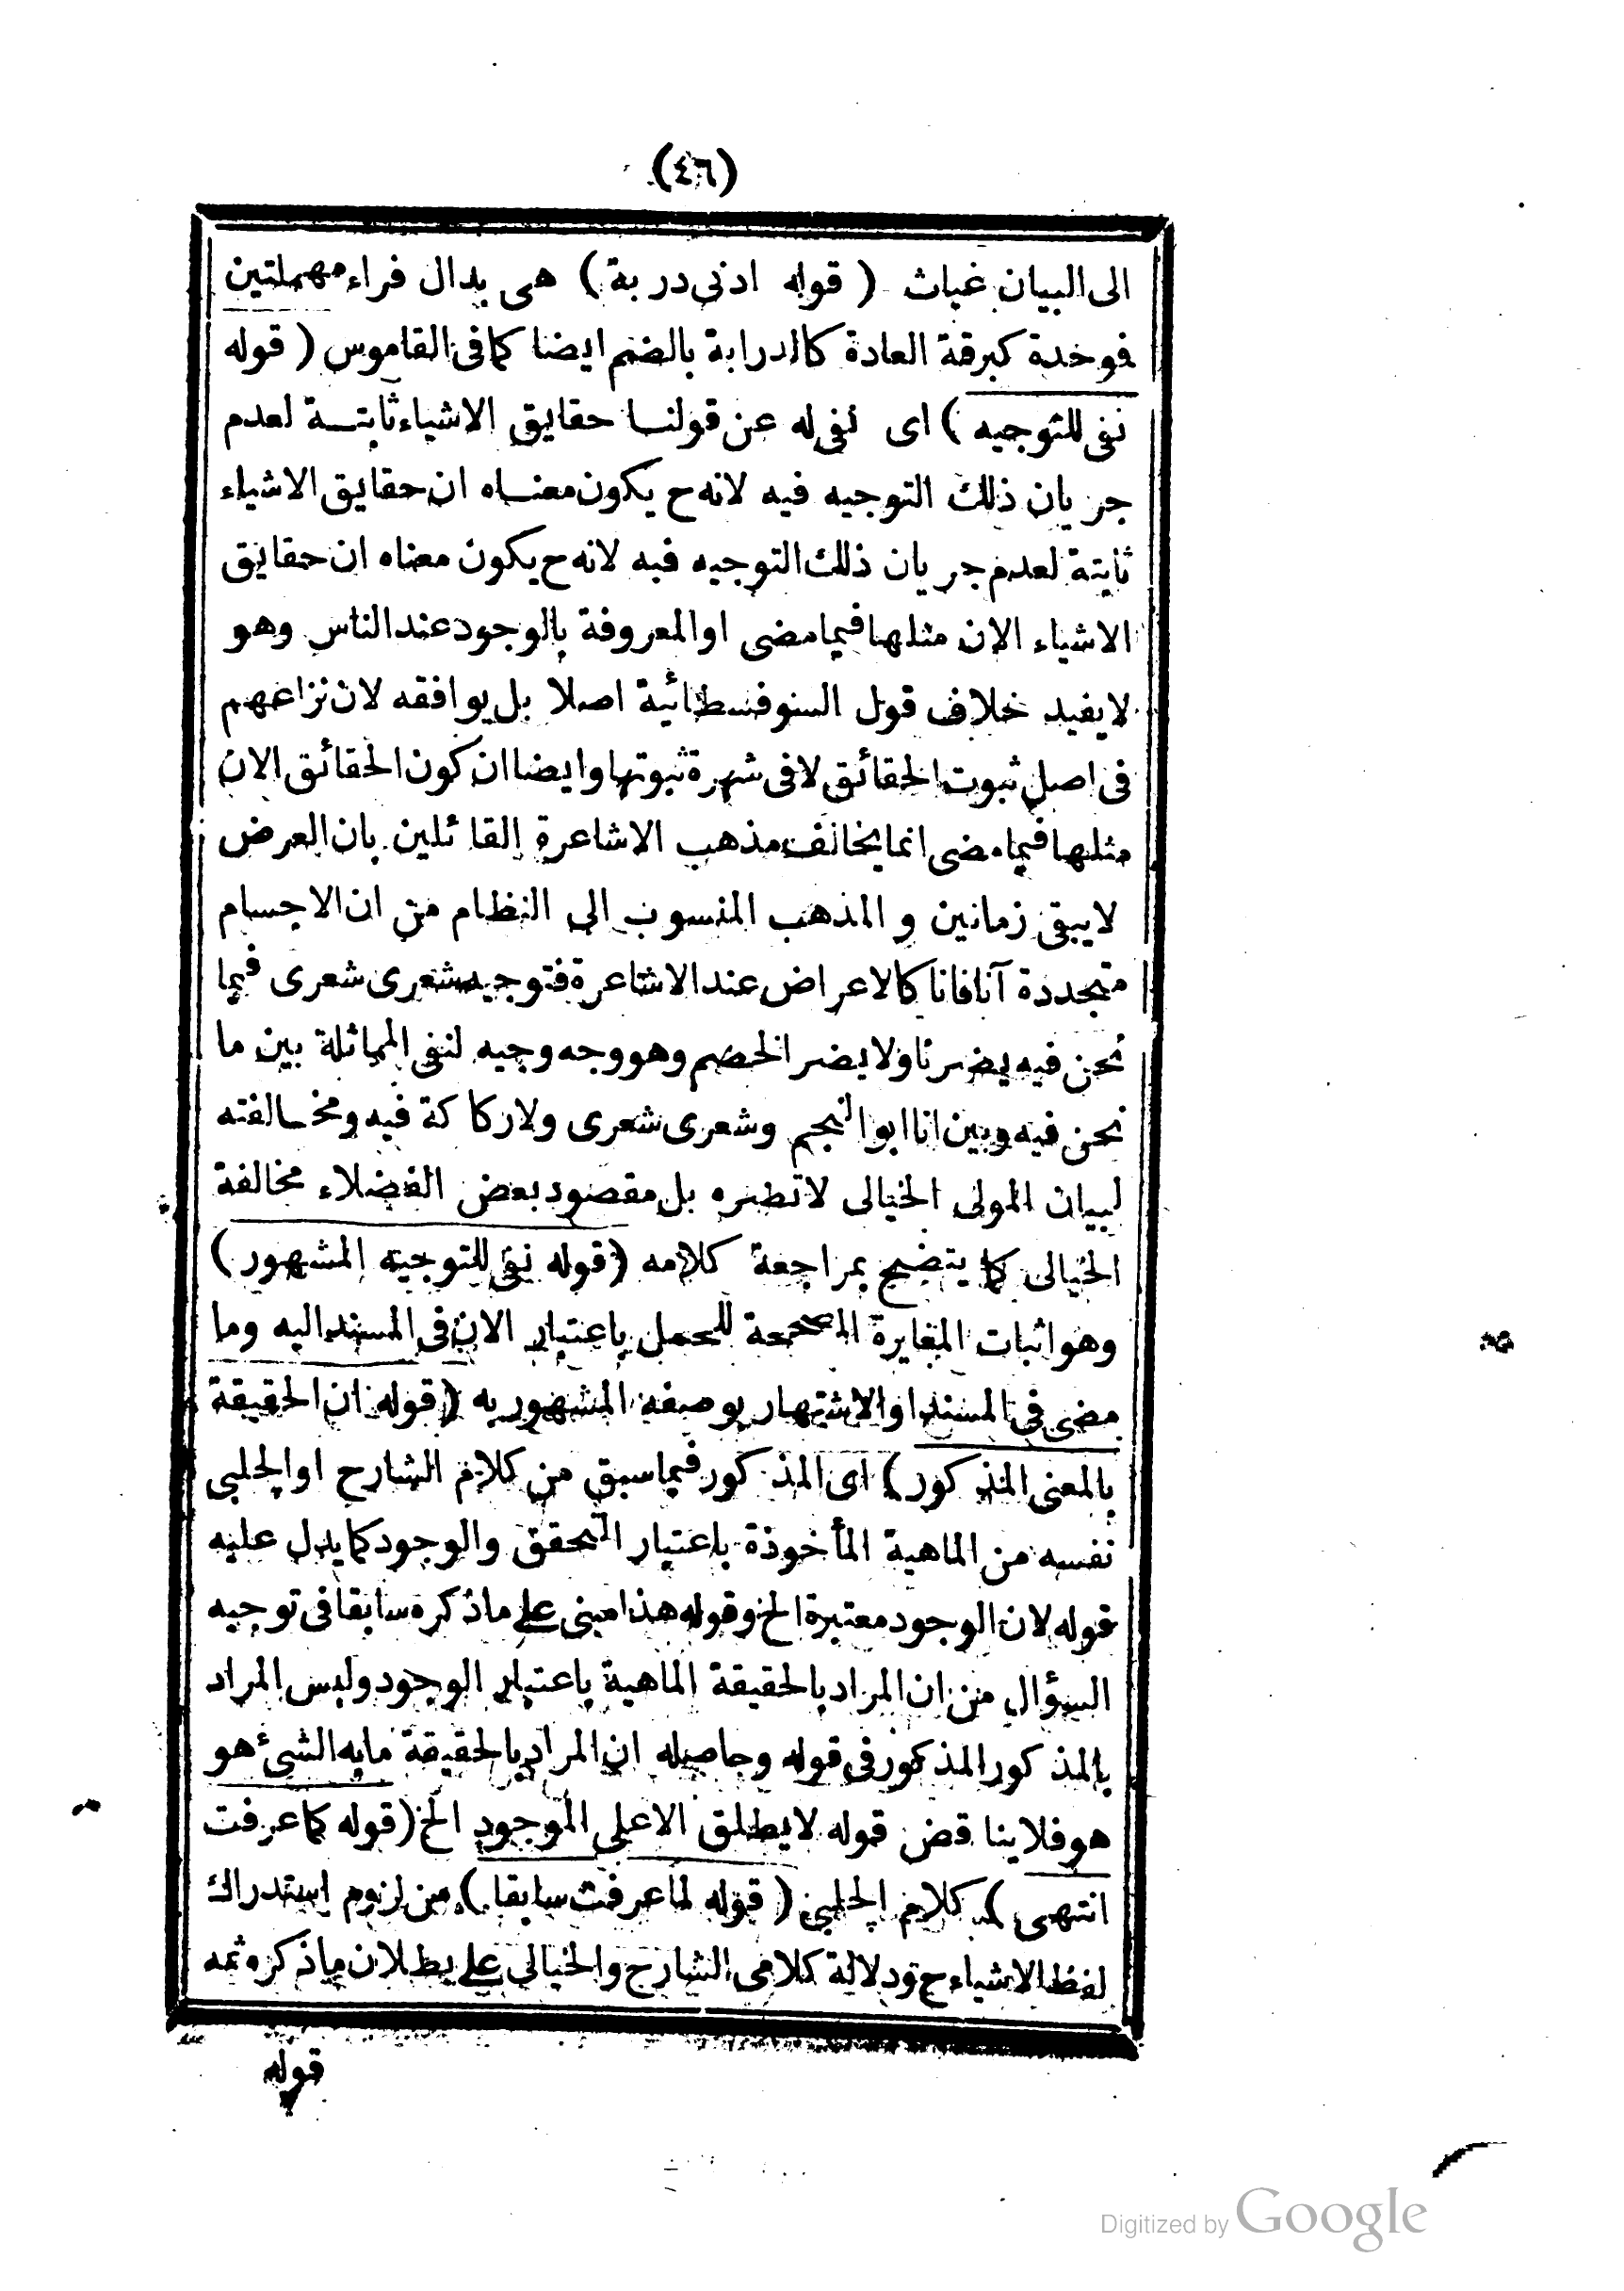 (٤٦)
الى البيان غباث ( قوله ادنى دربة ) هى بدال فراء مهملتين
فوحدة كبرقة العادة كالدرابة بالضم ايضا كما فى القاموس ( قوله
نفى للتوجيه ) اى نفى له عن قولنا حقايق الاشياء ثابتة لعدم
جريان ذلك التوجيه فيه لانه ح يكون معناه ان حقايق الاشياء
ثابتة لعدم جريان ذلك التوجيه فيه لانه ح يكون معناه ان حقايق
الاشياء الان مثلها فيما مضى او المعروفة بالوجود عند الناس وهو
لا يفيد خلاف قول السوفسطائية اصلا بل يوافقه لان نزاعهم
فى اصل ثبوت الحقائق لا فى شهرة ثبوتها وايضا ان كون الحقائق الان
مثلها فيما مضى انما يخالف مذهب الاشاعرة القائلين بان العرض
لا يبقى زمانين و المذهب المنسوب الى النظام من ان الاجسام
متجددة آنا فانا كالاعراض عند الاشاعرة فتوجيه شعرى شعرى فيما
نحن فيه يضرنا ولا يضر الخصم وهو وجه وجيه لنفى المماثلة بين ما
نحن فيه وبين انا ابو النجم وشعرى شعرى ولا ركاكة فيه ومخالفته
لبيان المولى الخيالى لا تضره بل مقصود بعض الفضلاء مخالفة
الخيالى كما يتضح بمراجعة كلامه ( قوله نفى للتوجيه المشهور )
وهو اثبات المغايرة المصححة للحمل باعتبار الان فى المسند اليه وما
مضى فى المسند او الاشتهار بوصفه المشهور به ( قوله ان الحقيقة
بالمعنى المذكور ) اى المذكور فيما سبق من كلام الشارح او الچلبى
نفسه من الماهية المأخوذة باعتبار التحقق والوجود كما يدل عليه
قوله لان الوجود معتبرة الخ وقوله هذا مبنى على ما ذكره سابقا فى توجيه
السؤال من ان المراد بالحقيقة الماهية باعتبار الوجود وليس المراد
بالمذكور المذكور فى قوله وحاصله ان المراد بالحقيقة ما به الشئ هو
هو فلا يناقض قوله لا يطلق الا على الموجود الخ ( قوله كما عرفت
انتهى ) كلام الچلبى ( قوله لما عرفت سابقا ) من لزوم استدراك
لفظ الاشياء ح ودلالة كلامى الشارح والخيالى على بطلان ما ذكره ثمه
قوله
Digitized by Google